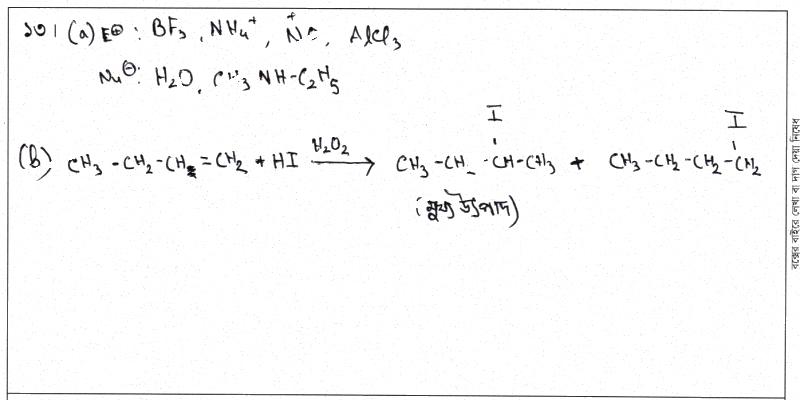 ১০। (a) E⊕ : BF₃, NH₄⁺, AlCl₃
Nu⊖: H₂O, CH₃ NH-C₂H₅
I I
(b) CH₃ -CH₂-CH=CH₂ + HI —H₂O₂→ CH₃ -CH₂ -CH-CH₃ + CH₃-CH₂-CH₂-CH₂
(মুখ্য উৎপাদ)
বক্সের বাইরে লেখা বা দাগ দেয়া নিষেধ